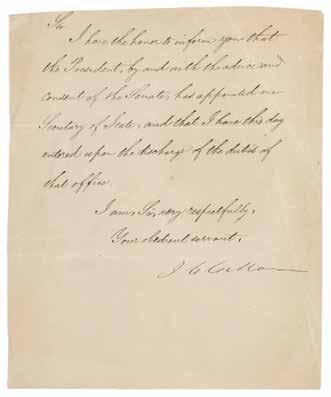 Sir
I have the honor to inform you that
the President, by and with the advice and
consent of the Senate, has appointed me
Secretary of State, and that I have this day
entered upon the discharge of the duties of
that office.
I am, Sir, very respectfully,
Your obedient servant,
J. C. Calhoun